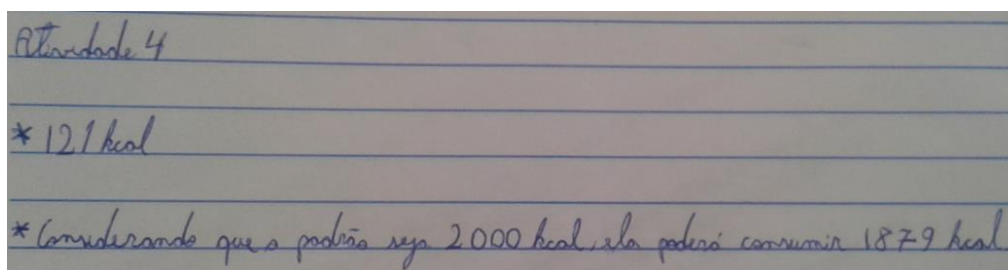 Atividade 4
* 121 kcal
* Considerando que o padrão seja 2000 kcal, ela poderá consumir 1879 kcal.